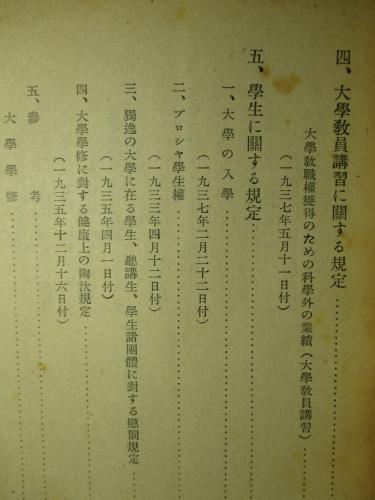 四、大學教員講習に關する規定
大學敎職權獲得のための科學外の業績（大學敎員講習）
（一九三七年五月十一日付）
五、學生に關する規定
一、大學の入學
（一九三七年二月二十二日付）
二、プロシャ學生權
（一九三三年四月十二日付）
三、獨逸の大學に在る學生、聽講生、學生諸團體に對する懲罰規定
（一九三五年四月一日付）
四、大學學修に對する健康上の陶汰規定
（一九三五年十二月十六日付）
五、參考
大學學修